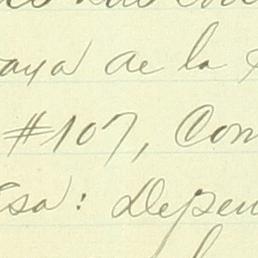 aya de la
#107, Com
esa: Depen